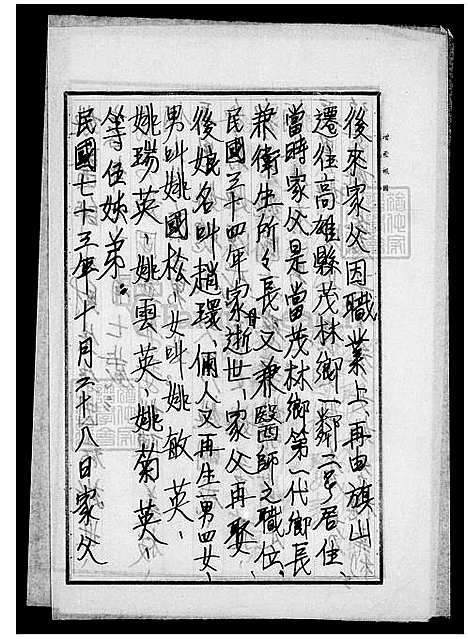 後來家父因職業上、再由旗山
遷住高雄縣茂林鄉一鄰二号居住、
當時家父是當茂林鄉第一代鄉長
兼衛生所々長又兼醫師之職位、
民國三十四年家母逝世、家父再娶
後娘名叫趙環、倆人又再生一男四女、
男叫姚國松、女叫姚敏英、
姚瑞英、姚雲英、姚菊英、
等位姊弟。
民國七十三年十月二十八日家父